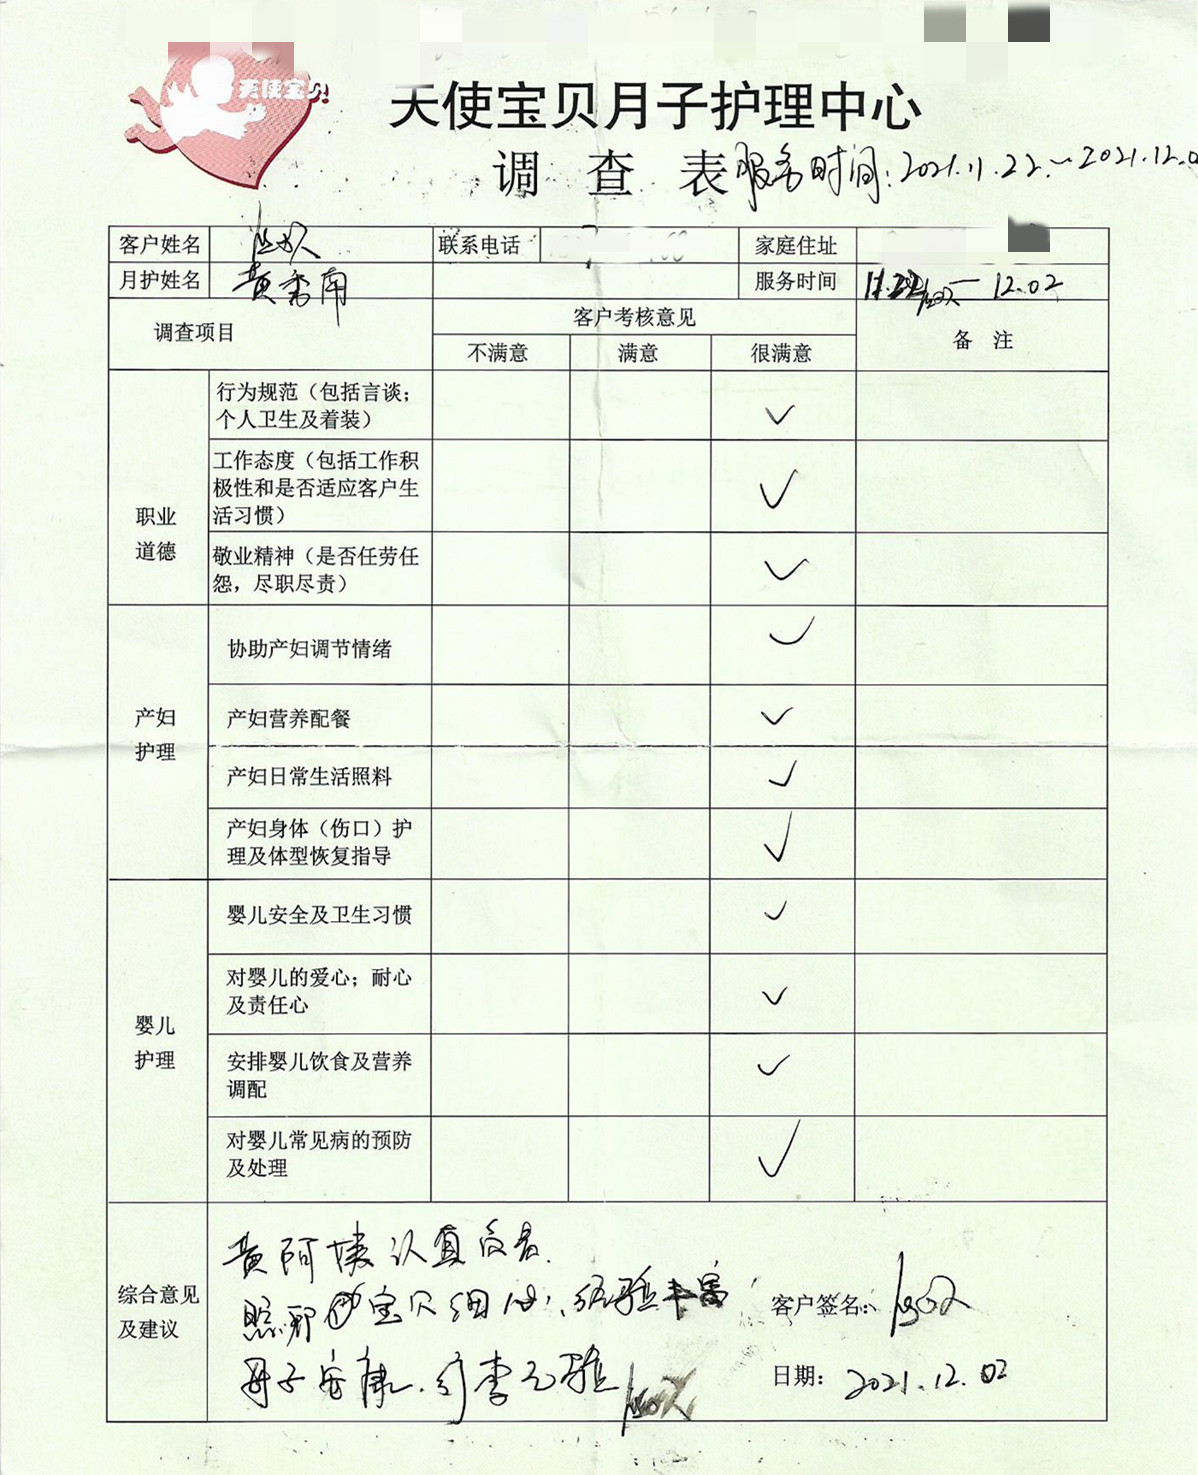 天使宝贝
天使宝贝月子护理中心
调 查 表 服务时间:2021.11.22.~2021.12.0
客户姓名 联系电话 家庭住址
月护姓名 黄秀南 服务时间 — 12.02
调查项目 客户考核意见 备 注
不满意 满意 很满意
职业
道德
行为规范（包括言谈；
个人卫生及着装） ✓
工作态度（包括工作积
极性和是否适应客户生
活习惯） ✓
敬业精神（是否任劳任
怨，尽职尽责） ✓
产妇
护理
协助产妇调节情绪 ✓
产妇营养配餐 ✓
产妇日常生活照料 ✓
产妇身体（伤口）护
理及体型恢复指导 ✓
婴儿
护理
婴儿安全及卫生习惯 ✓
对婴儿的爱心；耐心
及责任心 ✓
安排婴儿饮食及营养
调配 ✓
对婴儿常见病的预防
及处理 ✓
综合意见
及建议
黄阿姨认真
宝贝细心、经验丰富
母子安康.
客户签名：
日期： 2021.12.02